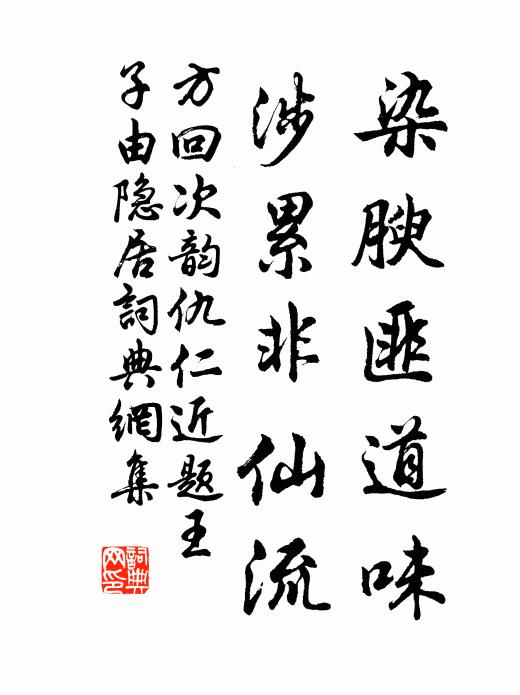 染腴匪道味
涉累非仙流
方回次韵仇仁近题王
子由隐居詞典網集
詞典
网印